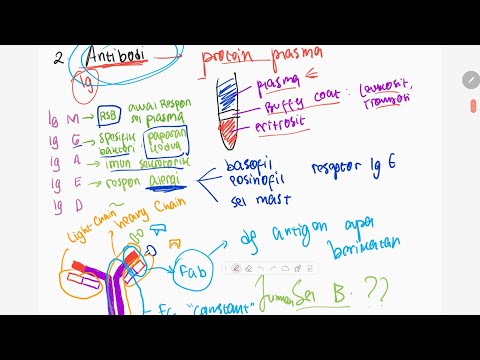 2. Antibodi
protein plasma
Ig
plasma
Buffy coat : Leukosit,
eritrosit
Ig M → RSB awal respon
sel plasma
Ig G → spesifik
bakteri. paparan
kedua
Ig A → imun sekretorik
Ig E → respon alergi
Ig D ~
basofil
eosinofil
sel mast
reseptor Ig E
Light Chain
heavy Chain
Fab
dg antigen apa
berikatan
Fc "constant"
Sel B. ??